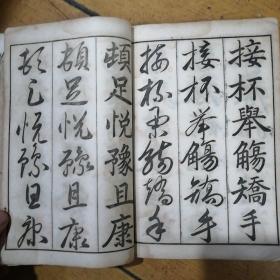 接杯舉觴矯手
接杯举觴矯手
接杯舉觴矯手
頓足悅豫且康
頓足悅豫且康
頓足悅豫且康